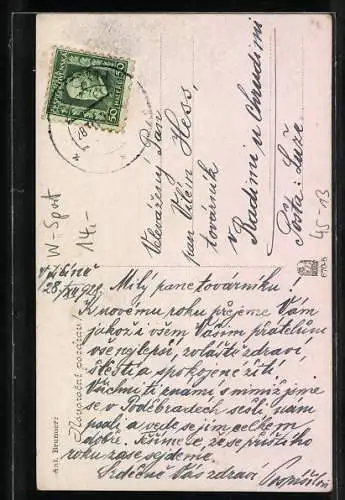 ČESKOSLOVENSKÁ
50 HALÉŘŮ 50
Velevážený Pan
pan Vilém Hess,
továrník
v Radimi u Chrudimi
Pošta: Luže.
W-Sport
14.-
45-13
670-b
Ant. Brunner:
Novoroční pozdrav!
v Jičíně
28/XII 192
Milý pane továrníku!
K novému roku přejeme Vám
jakož i všem Vašim přátelům
vše nejlepší, zvláště zdraví,
štěstí a spokojené žití.
Všichni ti známí s nimiž jsme
se v Poděbradech sešli, nám
psali a vede se jim celkem
dobře. Těšíme se že se příštího
roku zase sejdeme.
Srdečně Vás zdraví